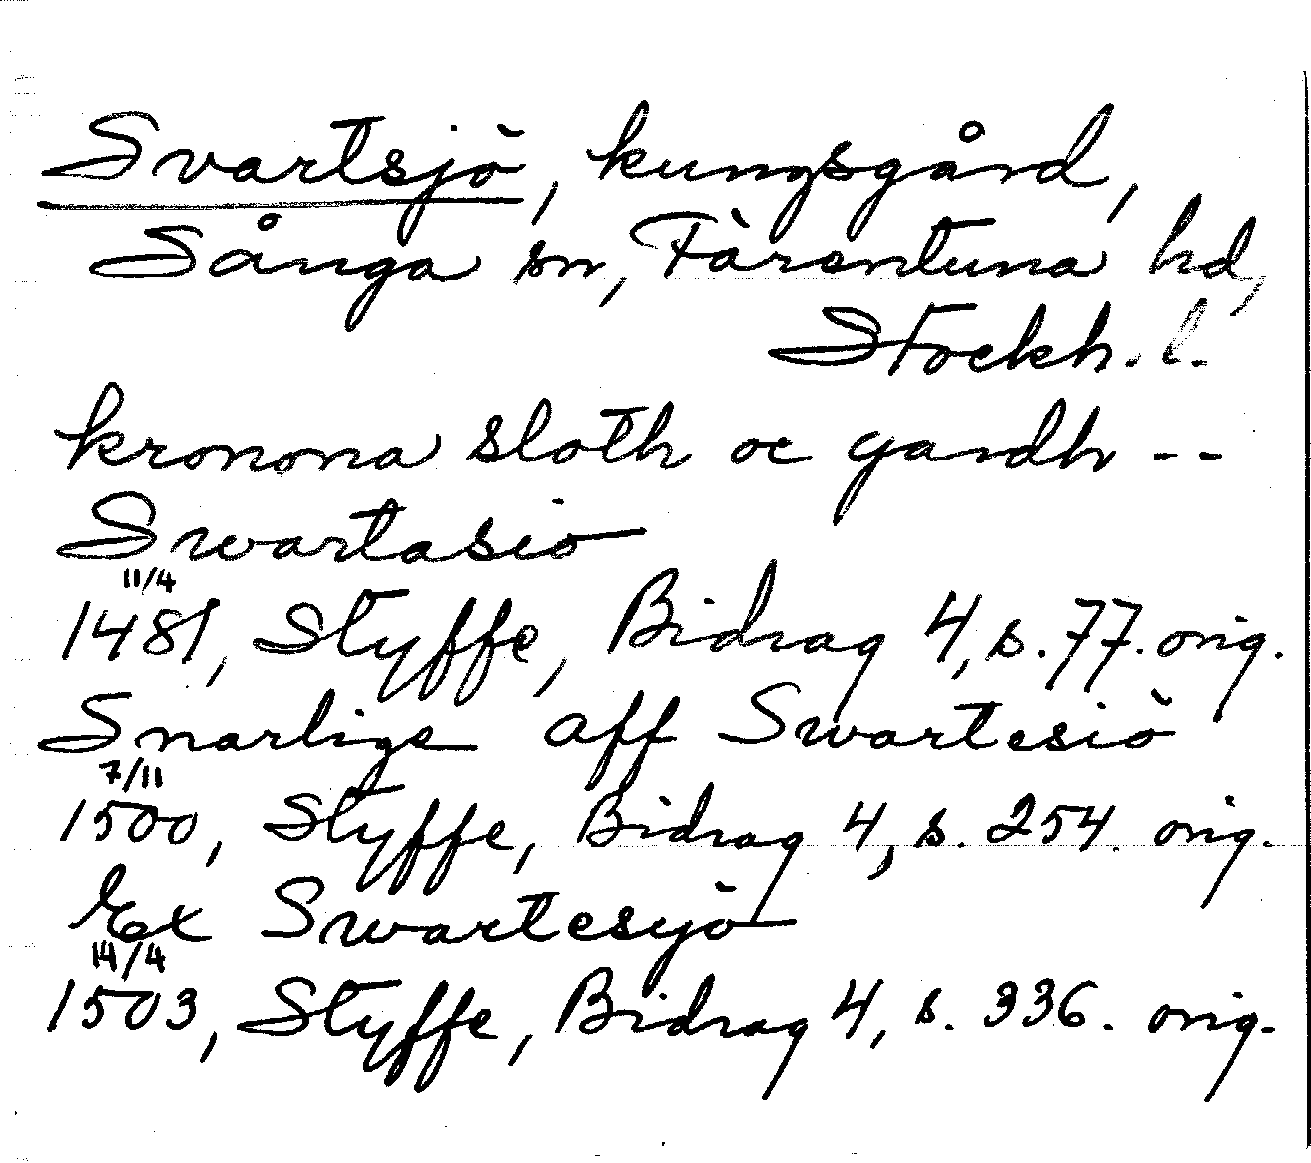 Svartsjö, kungsgård,
Sånga sn, Färentuna hd,
Stockh. l.
kronona sloth oc gardh --
Swartasiö
11/4
1481, Styffe, Bidrag 4, s. 77. orig.
Snarligs aff Swartesiö
7/11
1500, Styffe, Bidrag 4, s. 254. orig.
Ex Swartesyö
14/4
1503, Styffe, Bidrag 4, s. 336. orig.